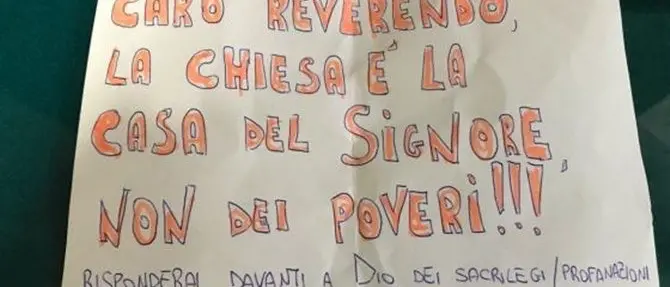 CARO REVERENDO,
LA CHIESA È LA
CASA DEL SIGNORE,
NON DEI POVERI!!!
RISPONDERAI DAVANTI A DIO DEI SACRILEGI/PROFANAZIONI